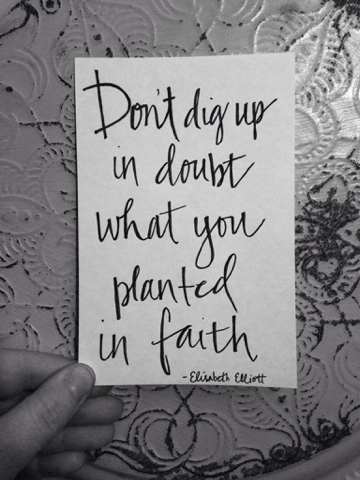 Don't dig up
in doubt
what you
planted
in faith
- Elisabeth Elliott